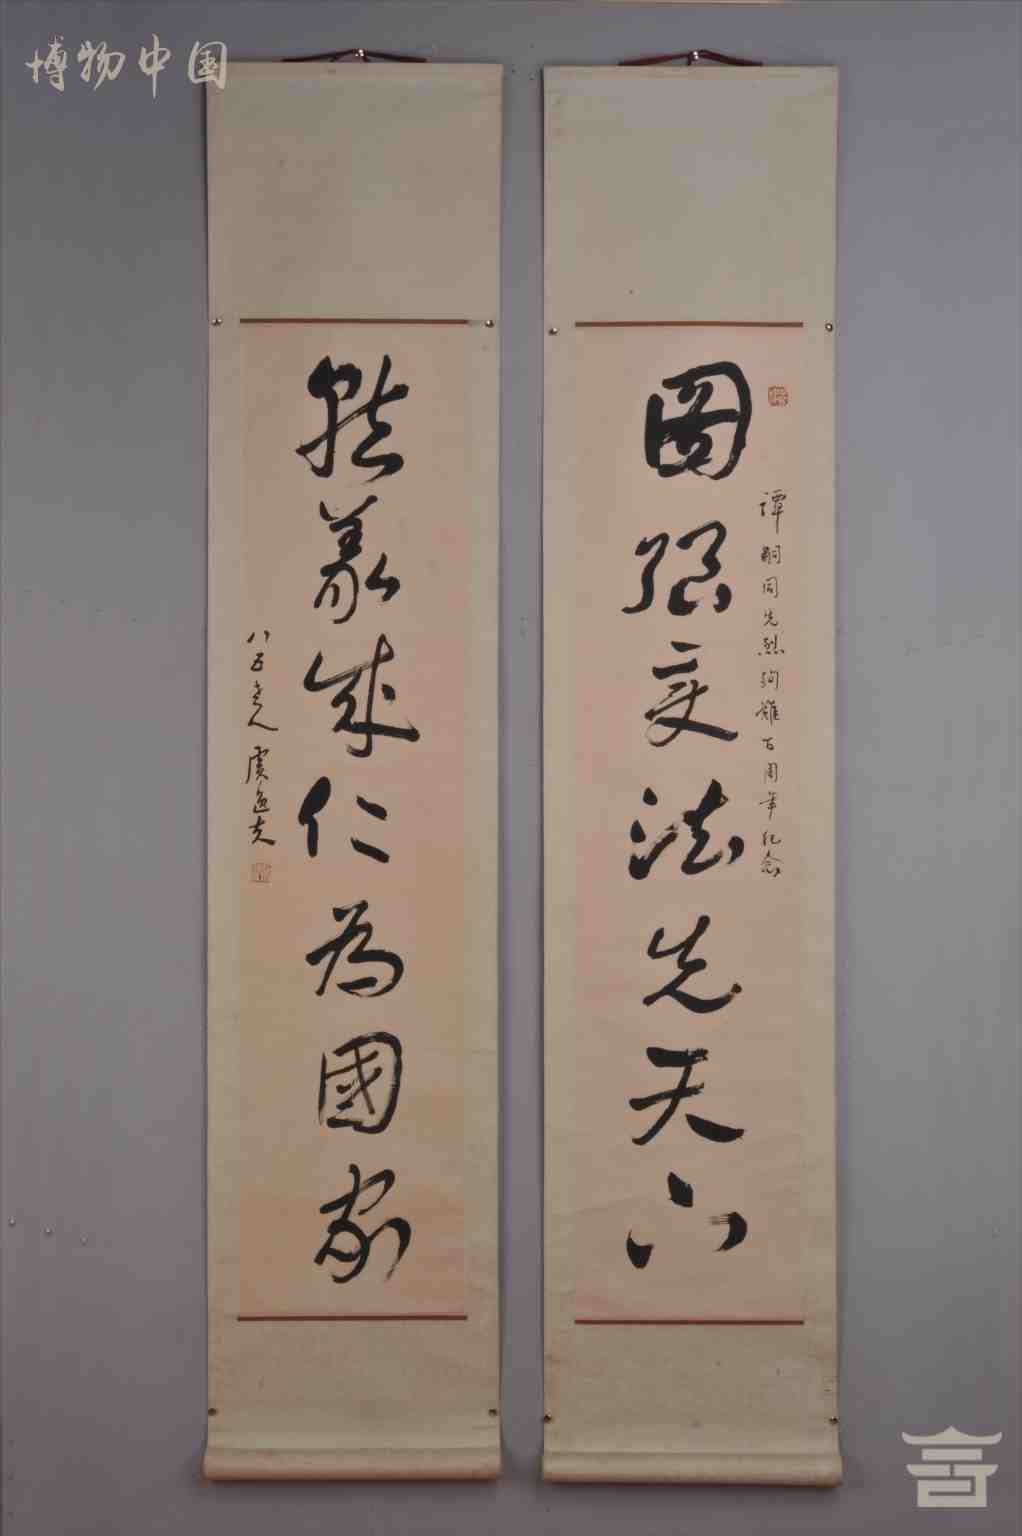 博物中国
图强变法先天下
譚嗣同先烈殉難百周年纪念
就義成仁為國家
八五老人虞逸夫